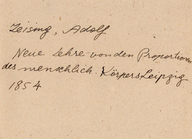 Zeising, Adolf
Neue Lehre von den Proportionen
des menschlich. Körpers Leipzig
1854